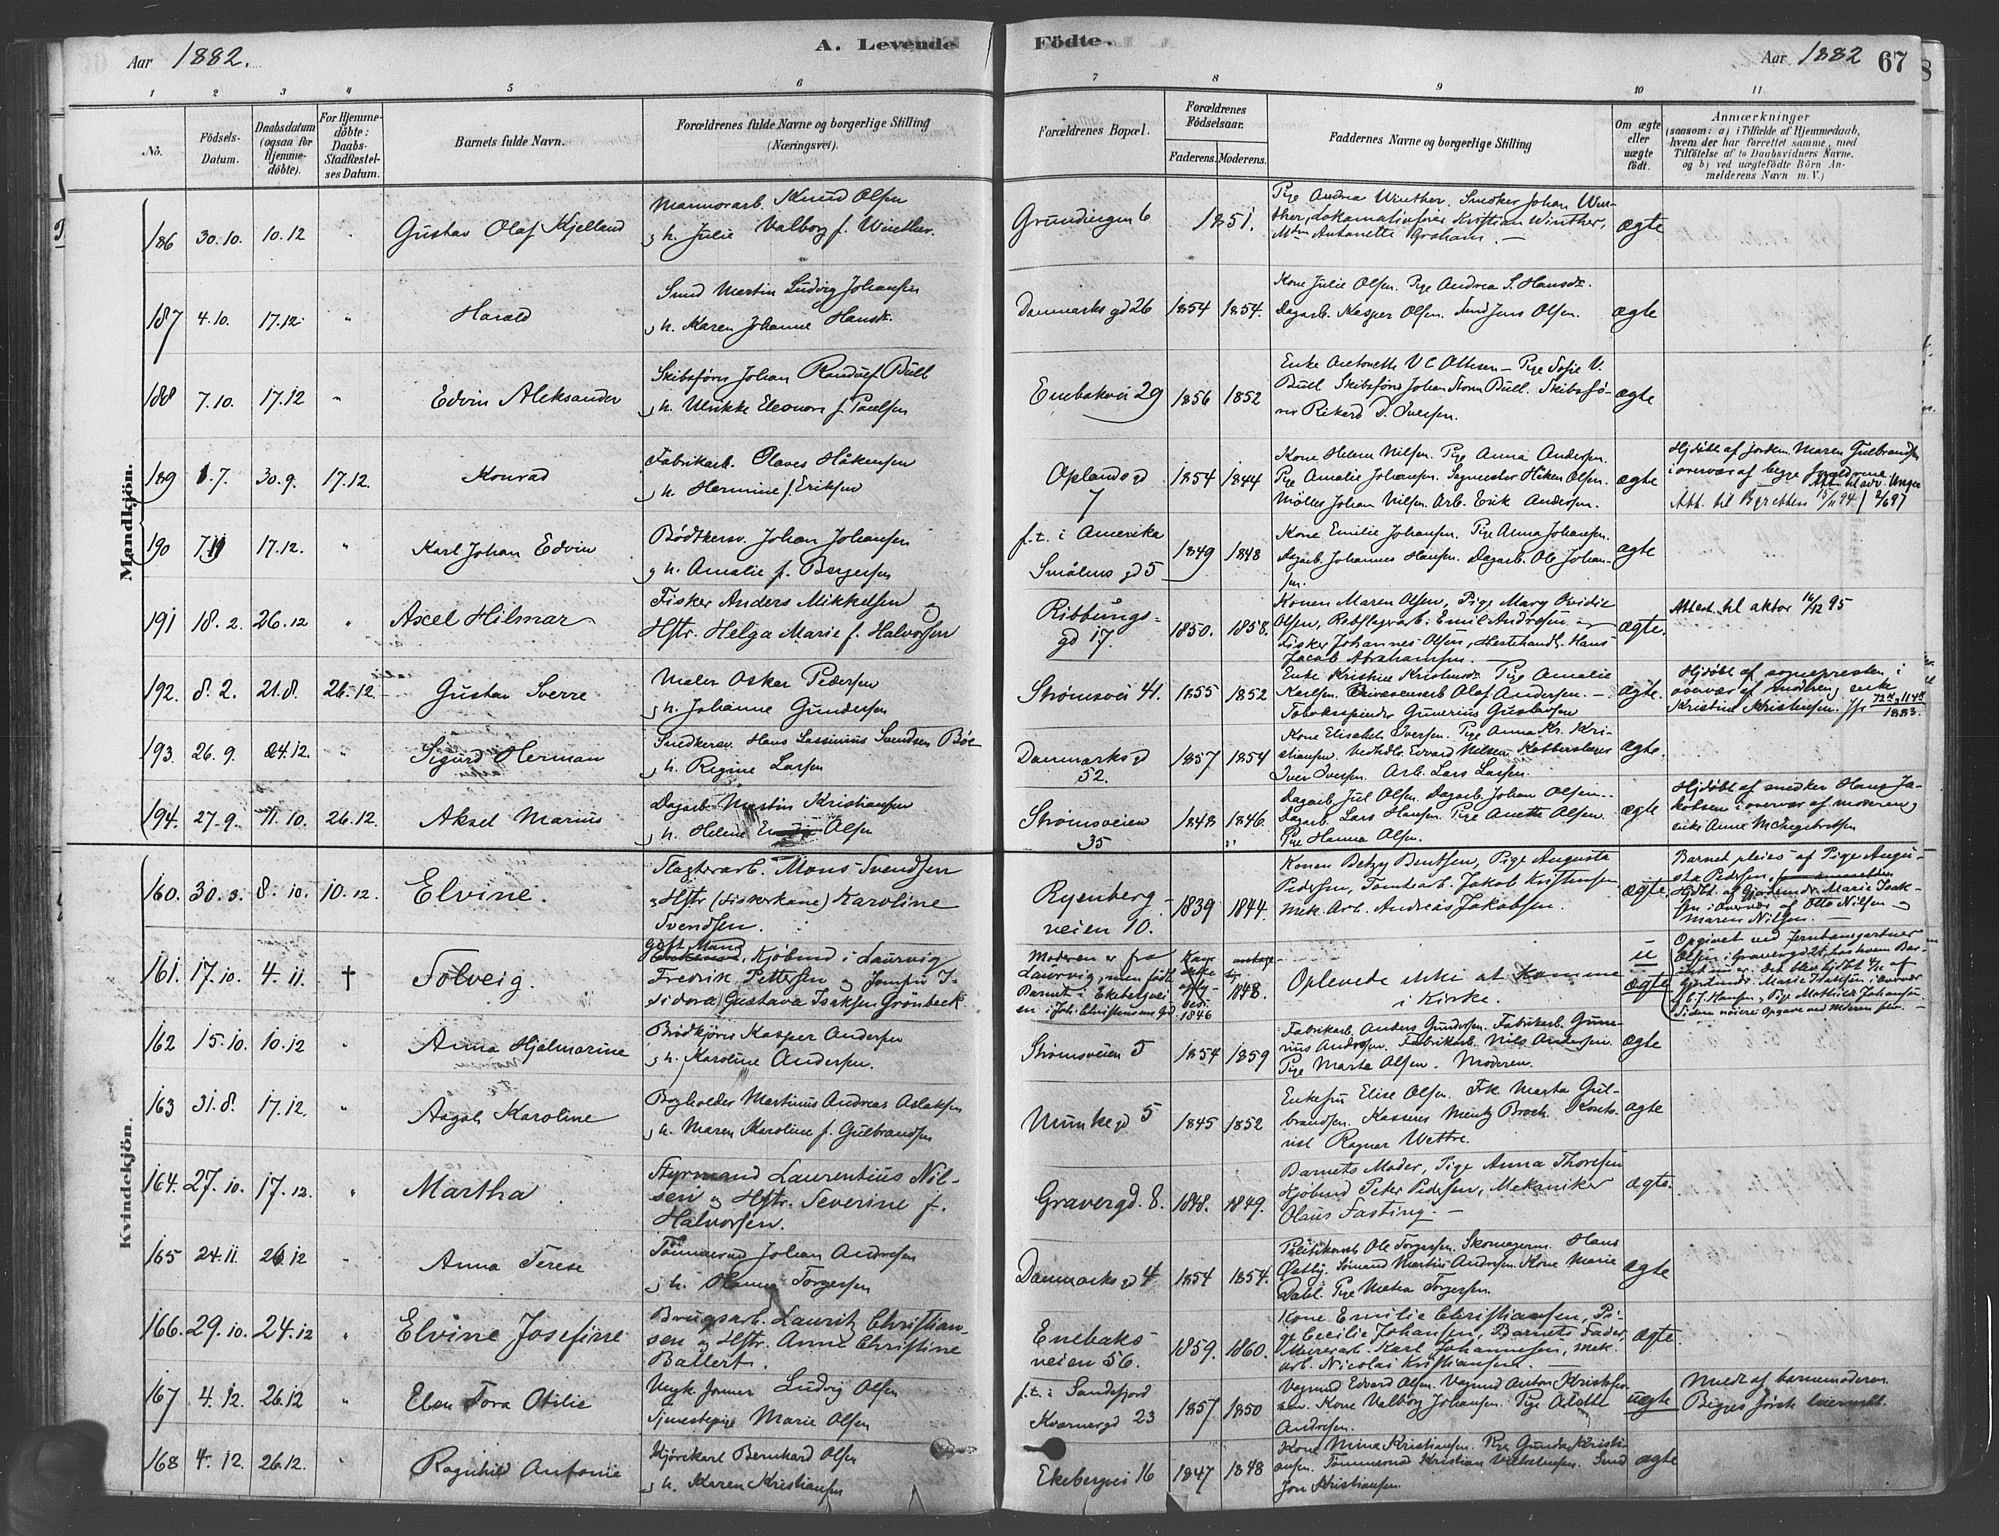 A. Levende Födte.
Aar 1882.
Aar 1882 67
1 2 3 4 5 6 7 8 9 10 11
No.
Födsels-Datum.
Daabsdatum (ogsaa for Hjemmedöbte).
For Hjemmedöbte: Daabs-Stadfæstelses Datum.
Barnets fulde Navn.
Forældrenes fulde Navne og borgerlige Stilling (Næringsvei).
Forældrenes Bopæl.
Forældrenes Födselsaar.
Faderens. Moderens.
Faddernes Navne og borgerlige Stilling
Om ægte eller uægte födt.
Anmærkninger
(saasom: a) i Tilfælde af Hjemmedaab, hvem der har forrettet samme, med Tilföielse af to Daabsvidners Navne, og b) ved uægtefödte Börn Anmelderens Navn m. V.)
Mandkjön.
186 30.10. 10.12 " Gustav Olaf Kjelland
Marmorarb. Knud Olsen
og h. Julie Valborg f. Winther.
Grundingen 6 1851.
Pige Andrea Winther. Snedker Johan Winther, Lokomotivfører Kristian Winther, Mdm Antonette Graham. —
ægte
187 4.10. 17.12. " Harald
Smed Martin Ludvig Johansen
og h. Karen Johanne Hansdt.
Danmarks gd 26 1854 1854.
Kone Julie Olsen. Pige Andrea S. Hansdt.
Dagarb. Kasper Olsen. Smed Jens Olsen.
ægte
188 7.10. 17.12 " Edvin Aleksander
Skibsfører Johan Randulf Bull
og h. Ulrikke Eleonore f. Paulsen
Enebakvei 29 1856 1852
Enke Antonette V C Ottesen – Pige Sofie V.
Bull Skibsfører Johan Storm Bull. Skibsfører Rikard D. Iversen.
ægte
189 1.7. 30.9. 17.12. Konrad
Fabrikarb. Olaves Håkensen
og h. Hermine f. Eriksen
Oplandsgd 7 1854 1844
Kone Helene Nilsen. Pige Anna Andersen.
Pige Amalie Johansen. Sagmester Håken Olsen.
Møller Johan Nilsen. Arb. Erik Andersen.
ægte
Hjdøbt af jordm. Maren Gulbrandsen
i overvær af begge forældrene.
Att. til adv. Unger
Att. til Byretten 15/11 94. 2/6 97
190 7.11 17.12. " Karl Johan Edvin
Bødkersv. Johan Johansen
og h. Amalie f. Bergersen
f.t. i Amerika
Smålens gd 5 1849 1848
Kone Emilie Johansen. Pige Anna Johansen.
Dagarb. Johannes Hansen. Dagarb. Ole Johansen.
ægte
191 18.2. 26.12 " Axel Hilmar
Fisker Anders Mikkelsen og
Hstr. Helga Marie f. Halvorsen
Ribbungs-gd 17. 1850. 1858.
Konen Maren Olsen, Pige Mary Ovidie
Olsen, Rebslagerarb. Emil Andresen –
Fisker Johannes Olsen, Hestehandl. Hans
Jacob Abrahamsen. —
ægte.
Attest. til aktor 16/12 95
192. 8.2. 21.8. 26.12. Gustav Sverre
Maler Oskar Pedersen
og h. Johanne Gundersen
Strømsvei 41. 1855 1852
Enke Kristine Kristensen Pige Amalie
Karlsen. Olaf Andersen. –
Tobaksspinder Gunerius Gustavsen
ægte.
Hjdøbt af sognepresten i
overvær af moderen og enke
Kristine Kristensen. Jfr 1883.
193. 26.9. 24.12. " Sigurd Herman
Snedkersv. Hans Lassinius Svendsen Bøe
og h. Regine Larsen
Danmarks gd 52. 1857 1854
Kone Elisabeth Iversen. Pige Anna Kr. Kristiansen. Vedhdlr. Edvard Nilsen. Kobberslager
Iver Iversen. Arb. Lars Larsen.
ægte.
194. 27.9. 11.10. 26.12. Aksel Marius
Dagarb. Martin Kristiansen
og h. Helene Olsen
Strømsveien 35 1848 1846.
Dagarb. Juel Olsen. Dagarb. Johan Olsen.
Dagarb. Lars Hansen. Pige Anette Olsen.
Pige Hanna Olsen.
ægte
Hjdøbt af snedker Hans Jakobsen i overvær af moderen og
enke Anne M. Engebretsen
Kvindekjön.
160. 30.3. 8.10. 10.12. Elvine.
Slagterarb. Mons Svendsen
og Hstr (Fiskerkone) Karoline
Svendsen.
Ryenberg-veien 10. 1839 1844.
Konen Betzy Bentsen, Pige Augusta
Pedersen, Tomtearb. Jakob Kristiansen,
Mek. Arb. Andreas Jakobsen.
ægte
Barnet pleies af Pige Augusta Pedersen,
Hjdbt. af Gjordemdr. Marie Isaksen i Overvær af Otto Nilsen og
Maren Nilsen. —
161. 17.10. 4.11. † Solveig.
Gift Mand, Kjøbmd i Laurvig
Fredrik Pettersen og Jomfru Isidora Gustava Isaksen Grønbeck
Moderen er fra
Laurvig, men født
Barnet i Ekebergveien i Joh. Christiansens Gd.
1846 1848.
Oplevede ikke at komme
i Kirke.
uægte
Opgivet ved Jernbanegartner
Olsen i Gravergd 21, hos hvem Barnet nu er. Det blev hjdbt 4/11 af
Gjordemdr. Marie Isaksen i Overvær
af C. J. Hansen og Pige Mathilde Johansen.
Siden nøiere Opgave ved Moderen selv. —
162 15.10. 10.12 " Anna Hjalmarine
Brødkjører Kasper Andersen
og h. Karoline Andersen.
Strømsveien 5 1854 1859
Fabrikarb. Anders Gundersen. Fabrikarb. Gunerius Andersen. Fabrikarb. Nils Andersen.
Pige Marta Olsen. Moderen.
ægte
163 31.8. 17.12. " Aagot Karoline
Bogholder Martinus Andreas Aslaksen
og h. Maren Karoline f. Gulbrandsen
Munkegd 5 1845 1852
Enkefru Elise Olsen. Frk Marta Gulbrandsen. Kasserer Mentz Broch. Kontorist Ragnar Wettre.
ægte
164. 27.10. 17.12. " Martha
Styrmand Laurentius Nilsen og Hstr. Severine f.
Halvorsen.
Gravergd. 8. 1848. 1849.
Barnets Moder, Pige Anna Thoresen
Kjøbmd Peter Pedersen, Mekaniker
Olaus Fasting. —
ægte.
165 24.11 26.12 " Anna Terese
Tømmermd Johan Andresen
og h. Hanna Torgersen
Danmarks gd 4 1854 1854.
Politikonst. Ole Torgersen. Skomagerm. Hans
Østby. Sømand Martin Andersen. Kone Marie
Dahl. Pige Metha Torgersen.
ægte
166. 29.10. 24.12 " Elvine Josefine
Brugsarb. Lauritz Christiansen og Hstr. Anne Christine
Ballert.
Enebaks-veien 56. 1859. 1860.
Kone Emilie Christiansen, Pige Cecilie Johansen, Barnets Fader,
Murerarb. Karl Johannesen, Mek.
arb. Nicolai Kristiansen. —
ægte.
167 4.12. 26.12 " Ellen Tora Otilie
Ungk. Former Ludvig Olsen
Tjenestepige Marie Olsen
f.t. i Sandefjord
Kværnergd 23 1857 1850
Vognmd Edvard Olsen. Vognmd Anton Kristofersen. Kone Valborg Johansen. Pige Adethe
Andresen.
uægte
Meldt af barnemoderen
Begges første leiermål.
168 4.12. 26.12. " Ragnhild Antonie
Kjørekarl Bernhard Olsen
og h. Karen Kristiansen
Ekebergvei 16 1847 1848
Kone Mina Kristiansen. Pige Gunda Kristiansen. Tømmermd Kristian Vilhelmsen. Smed
Jon Kristiansen.
ægte